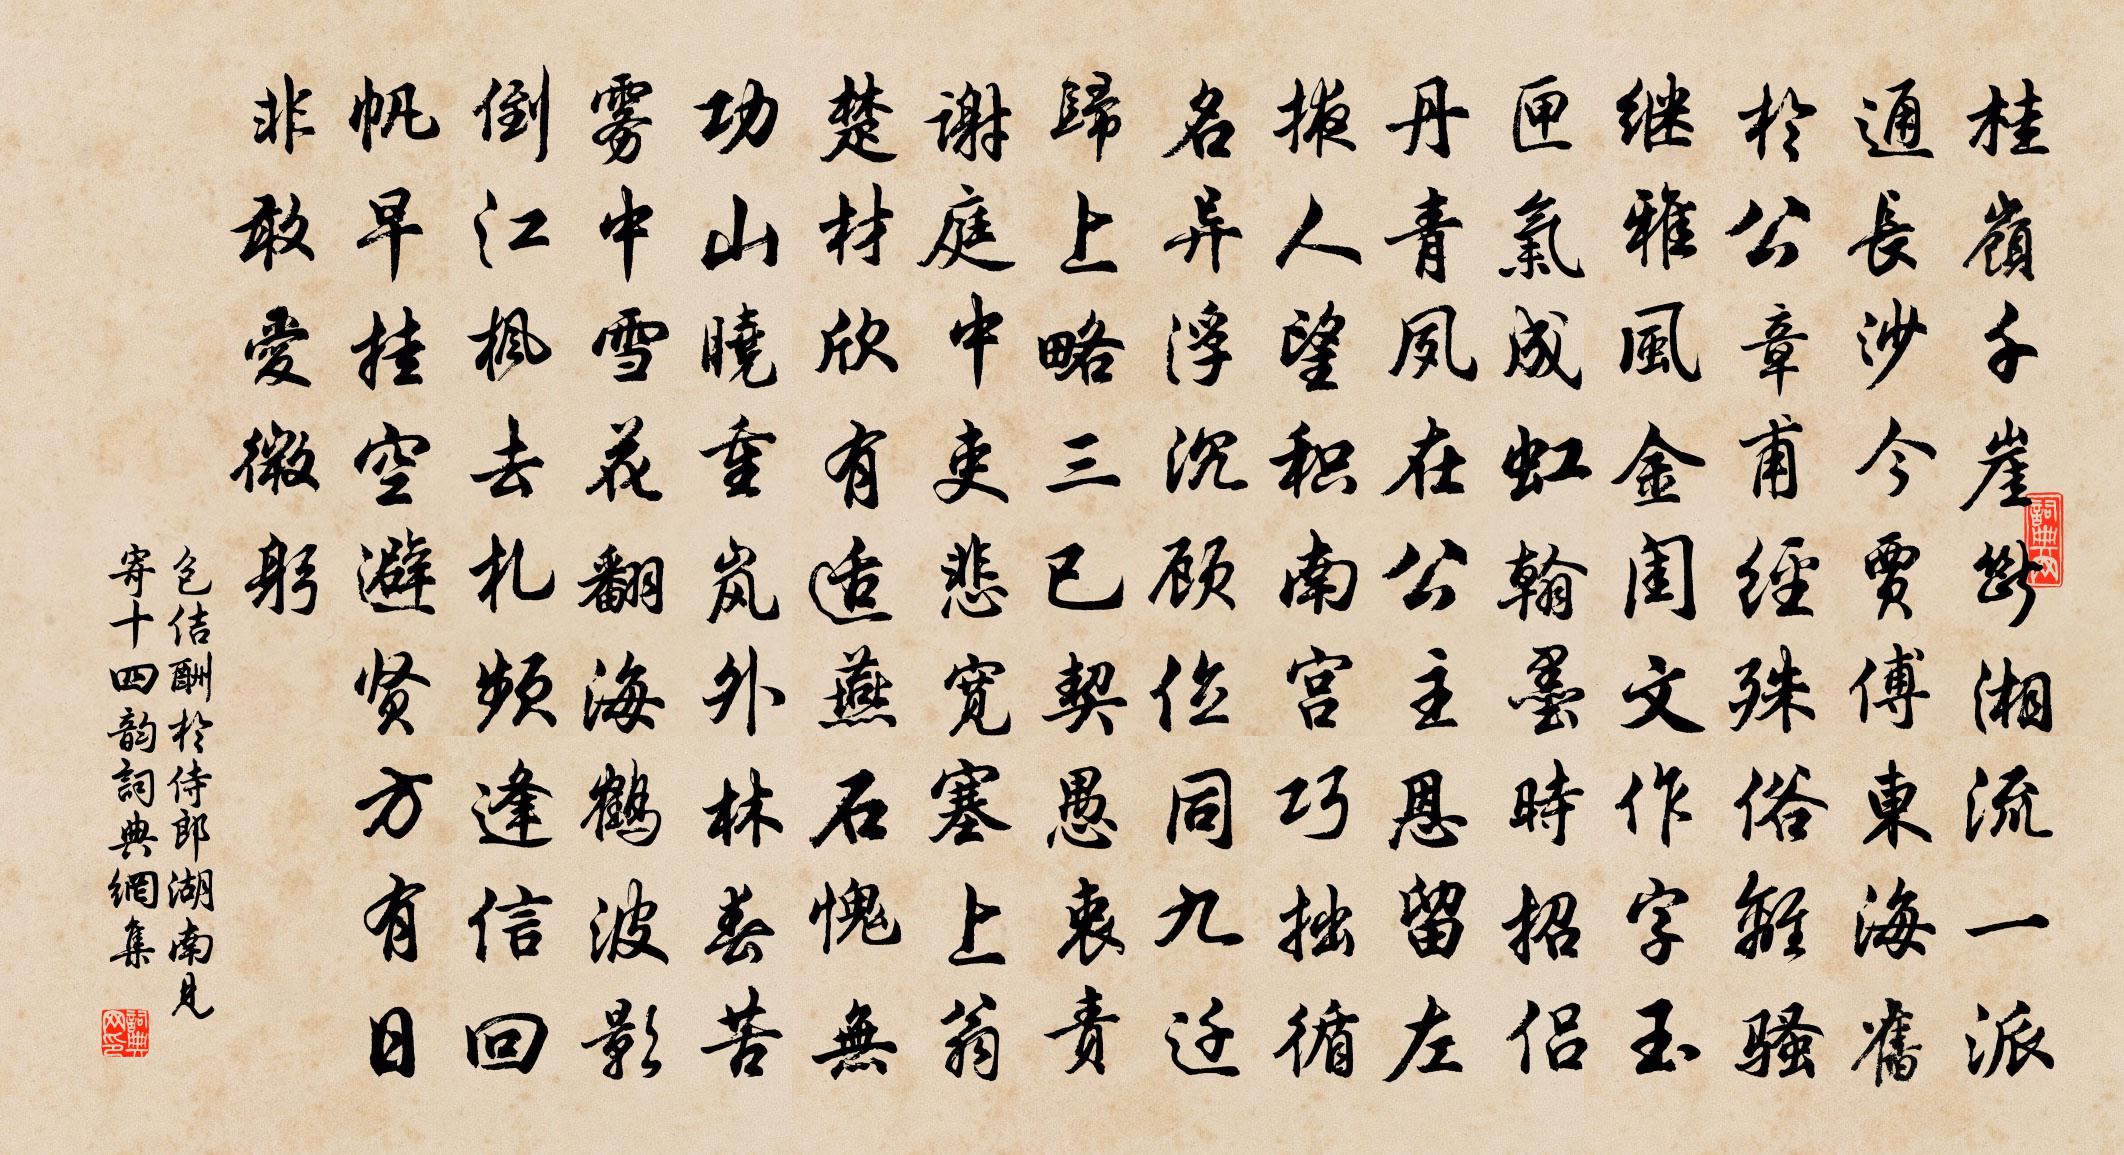 桂嶺千崖斷湘流一派
通長沙今賈傅東海舊
於公章甫經殊俗離騷
继雅風金閨文作字玉
匣氣成虹翰墨時招侣
丹青夙在公主恩留左
掖人望积南宫巧拙循
名异浮沉顾位同九迁
歸上略三已契愚衷责
谢庭中吏悲宽塞上翁
楚材欣有适燕石愧無
功山曉重岚外林春苦
雾中雪花翻海鹤波影
倒江枫去札频逢信回
帆早挂空避贤方有日
非敢愛微躬
包佶酬於侍郎湖南见
寄十四韵詞典網集
詞典网
詞典网印